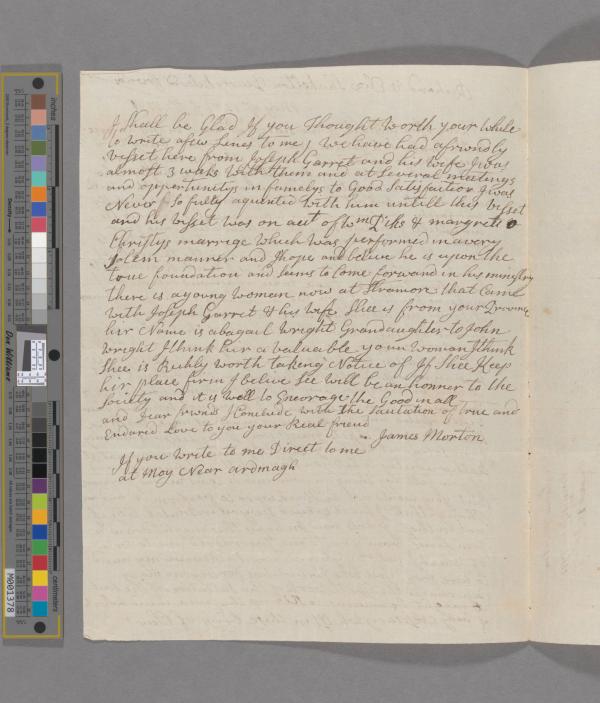 I Shall be Glad If you Thought Worth your While
to write afew Lines to me / We have had afrindly
visset here from Joseph Garret and his Wife I was
almost 3 weeks With them and at Several meetings
and oppertunitys in famelys to Good Satisfaction I was
Never So fully aquented with him untill this visset
and his visset was on acct of Wm Piks & margrett
Christys marrige Which was performed in avery
Solem manner and I hope and believe he is upon the
true foundation and Seems to Come forward in his ministry
there is ayoung Woman now at Stramore that Came
with Joseph Garret & his Wife Shee is from your
hir Name is abagail Wright Grandaughter to John
Wright I think hir a valuable young Woman I think
Shee is Richly Worth taking Notice of If Shee Keep
hir place firm I belive See Will be an honner to the
Society and it is Well to Encorage the Good in all
and Dear frinds I Conclude with the Salutation of True and
Endured Love to you your Real friend
James Morton
If you Write to me Direct to me
at Moy Near ardmagh
inches
centimetres
Don Williams
M001378